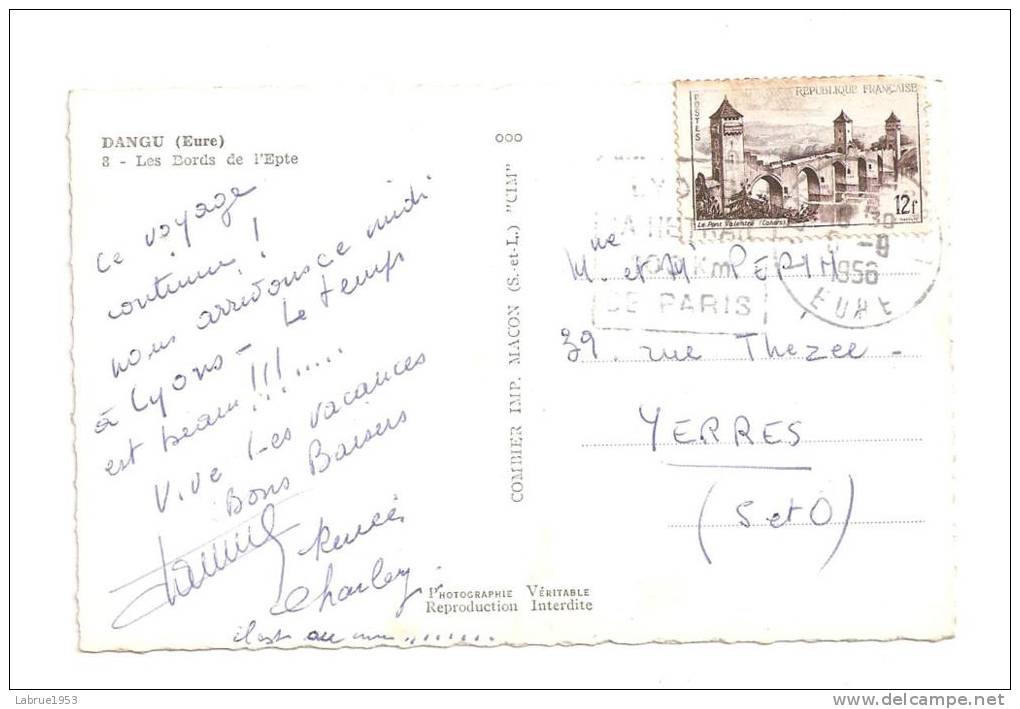 DANGU (Eure)
8 - Les Bords de l'Epte
ce voyage
continue !
nous arrivons ce midi
à Lyons - Le temps
est beau !!!.....
Vive les vacances
Bons Baisers
Renée
Charley
il est au .......
PHOTOGRAPHIE VÉRITABLE
Reproduction Interdite
COMBIER IMP. MACON (S.-et-L.) "CIM"
REPUBLIQUE FRANÇAISE
POSTES
12f
Le Pont Valentré (Cahors)
LYO
LA
Km
DE PARIS
1956
EURE
Mme et M. PERIN
39. rue Thezee -
YERRES
(S et O)
Labrue1953
delcampe.net